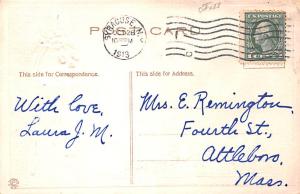 POST CARD
SYRACUSE, N.Y.
1913
U.S. POSTAGE
This side for Correspondence.
This side for Address.
With love,
Laura J. M.
Mrs. E. Remington,
Fourth St.,
Attleboro,
Mass.